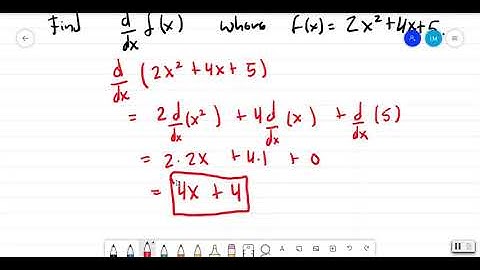 Find d/dx f(x) where f(x) = 2x² + 4x + 5.
d/dx (2x² + 4x + 5)
= 2 d/dx (x²) + 4 d/dx (x) + d/dx (5)
= 2·2x + 4·1 + 0
= 4x + 4